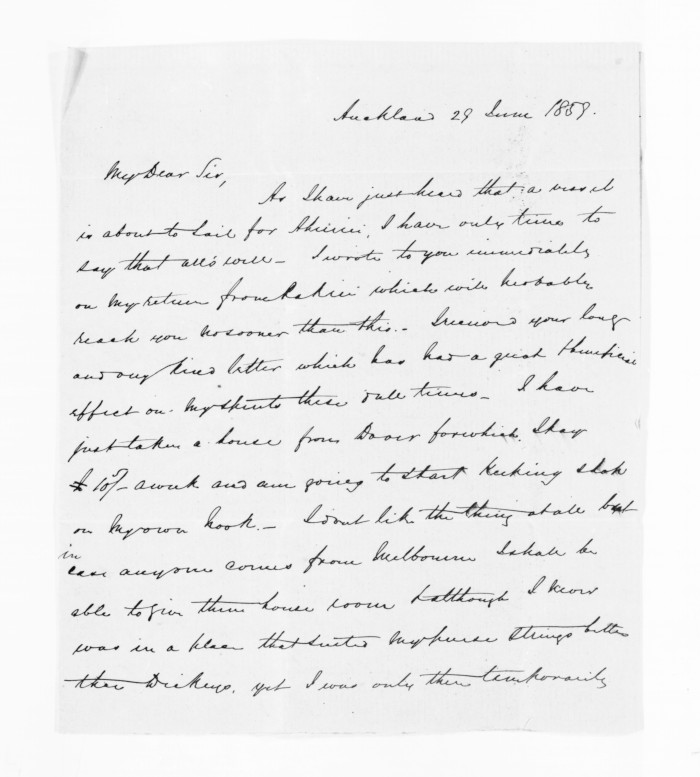 Auckland 29 June 1859.
My Dear Sir,
As I have just heard that a vessel
is about to sail for Ahuriri, I have only time to
say that all's well - I wrote to you immediately
on my return from which will probably
reach you no sooner than this. - I received your long
and very kind letter which has had a great & beneficial
effect on my spirits these dull times - I have
just taken a house from for which I pay
10/- a week and am going to start keeping
on my own hook. - I don't like the thing at all but
in
case anyone comes from Melbourne I shall be
able to give them house room & although I never
was in a place that suited my purse strings better
than Dickeys, yet I was only there temporarily